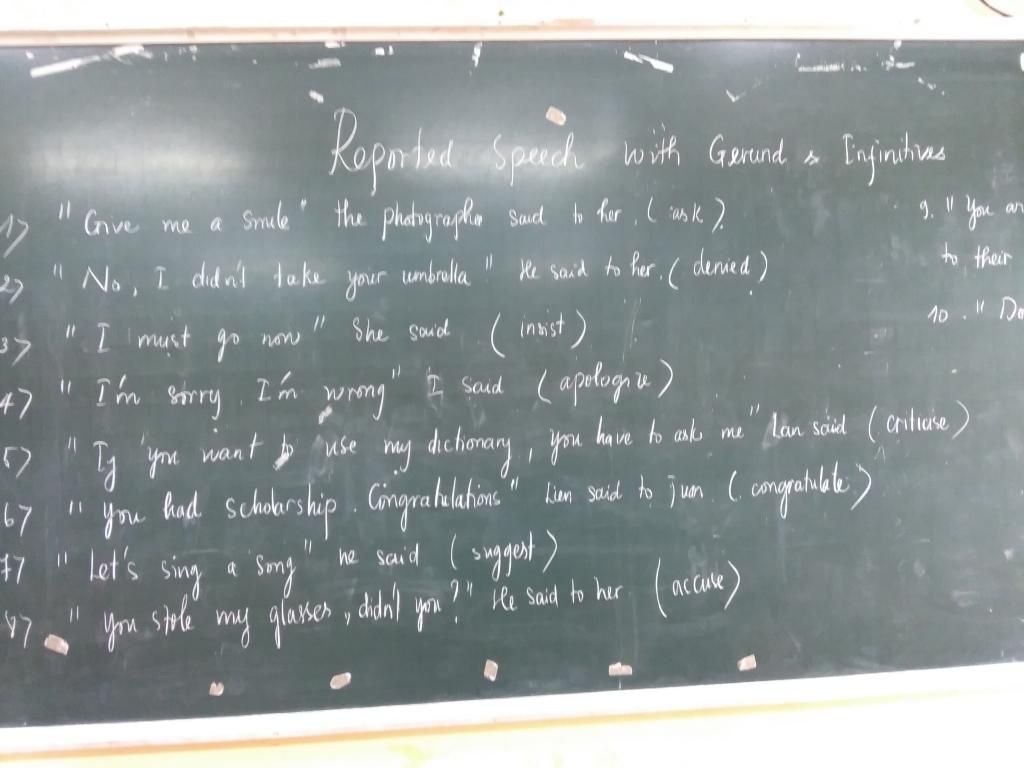 Reported Speech with Gerund & Infinitives
1) "Give me a smile" the photographer said to her. (ask).
2) "No, I didn't take your umbrella" He said to her. (denied)
3) "I must go now" She said (insist)
4) "I'm sorry. I'm wrong" I said (apologize)
5) "If you want to use my dictionary, you have to ask me" Lan said (criticise)
6) "You had scholarship. Congratulations" Lien said to juan. (congratulate)
7) "Let's sing a song" he said (suggest)
8) "You stole my glasses, didn't you?" He said to her. (accuse)
9. "You ar
to their
10. "Do